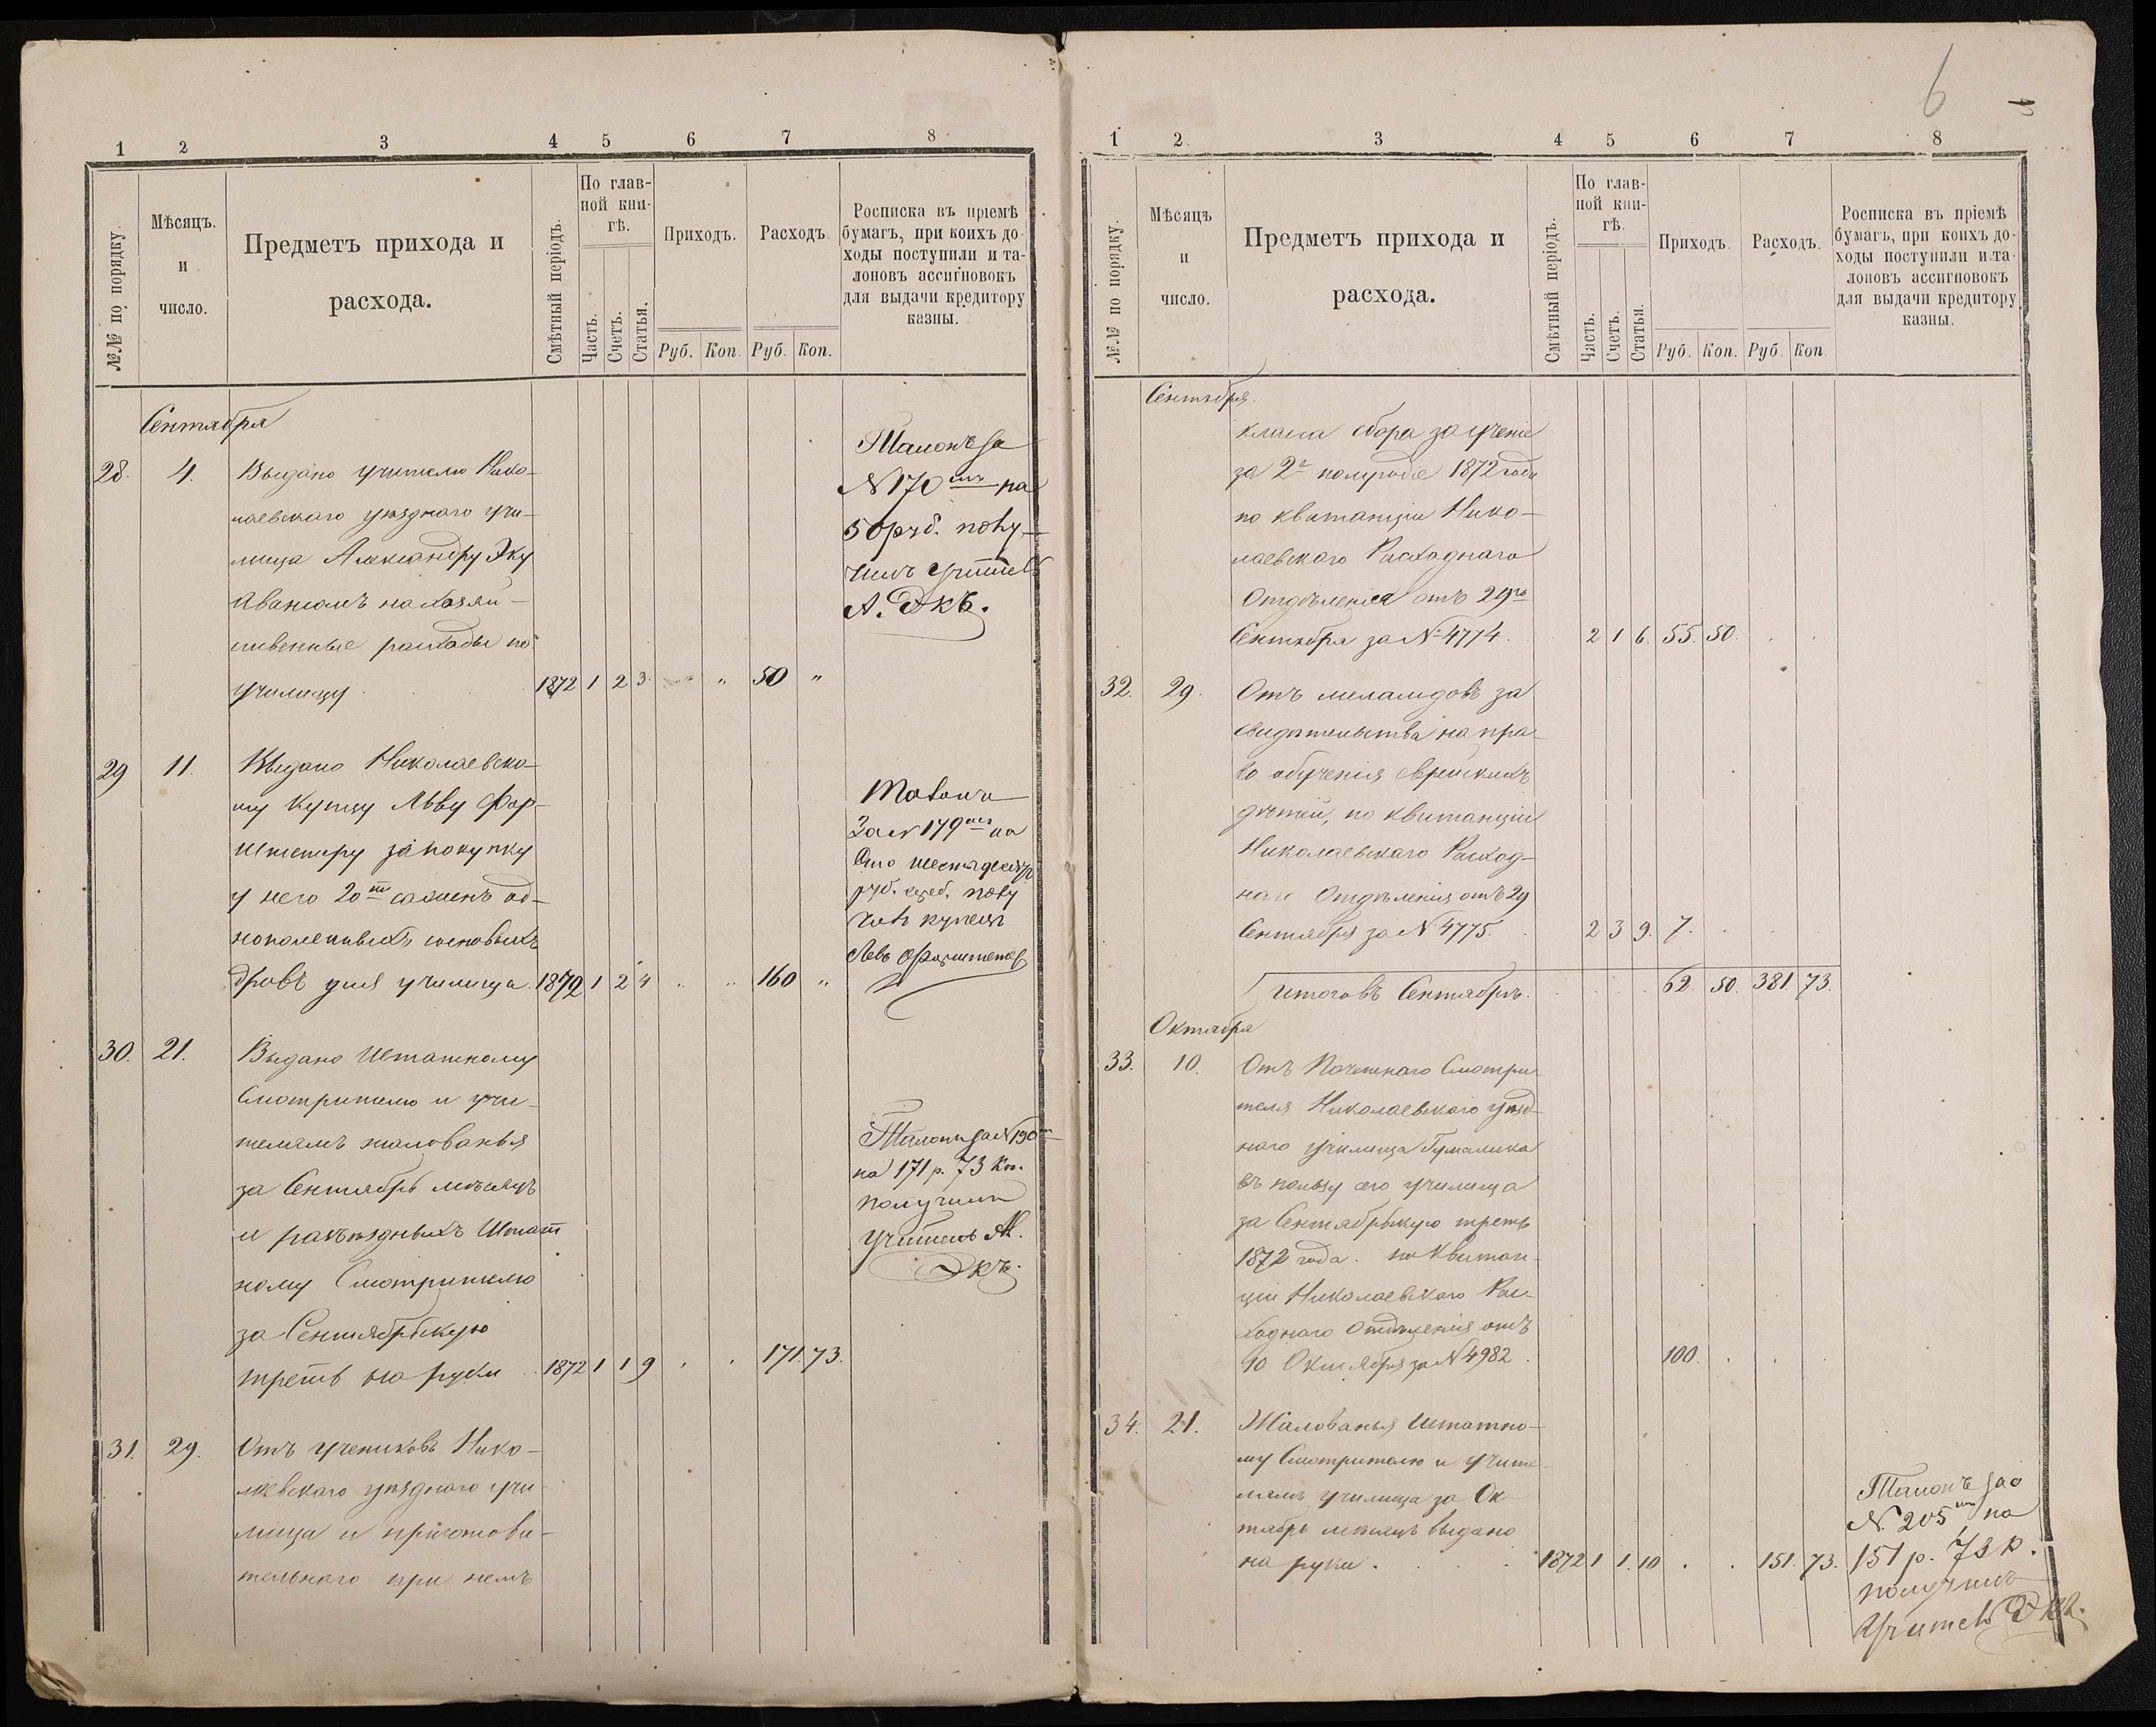 1 2 3 4 5 6 7 8
№№ по порядку.
Мѣсяцъ.
и
число.
Предметъ прихода и
расхода.
Смѣтный періодъ.
По глав-
ной кни-
гѣ.
Часть.
Счетъ.
Статья.
Приходъ.
Руб. Коп.
Расходъ.
Руб. Коп.
Росписка въ пріемѣ
бумагъ, при коихъ до-
ходы поступили и та-
лоновъ ассигновокъ
для выдачи кредитору
казны.
Сентября
28. 4. Выдано учителю Нико-
лаевскаго уѣзднаго учи-
лища Александру Эку
авансомъ на хозяй-
ственные расходы по
училищу . . 1872 1 2 3. " 50 "
Талонъ за
N 170 на
50 руб. полу-
чилъ учитель
А. Экъ.
29 11. Выдано Николаевско-
му купцу Льву Фор-
штетеру за покупку
у него 20ти сажень од-
нополенныхъ сосновыхъ
дровъ для училища. 1872 1 2 4 " " 160 "
Талонъ
За N 179 на
Сто шестьдесятъ
руб. сереб. полу
чилъ купецъ
Левъ Форштетеръ
30. 21. Выдано Штатному
Смотрителю и учи-
телямъ жалованья
за Сентябрь мѣсяцъ
и разъѣздныхъ Штат
ному Смотрителю
за Сентябрьскую
треть на руки . . 1872 1 1 9 . . 171. 73.
Талонъ за N 190
на 171 р. 73 кп.
получилъ
учитель А.
Экъ.
31. 29. Отъ учениковъ Нико-
лаевскаго уѣзднаго учи-
лища и приготови-
тельнаго при немъ
6
1 2. 3 4 5 6 7 8
№№ по порядку.
Мѣсяцъ
и
число.
Предметъ прихода и
расхода.
Смѣтный періодъ.
По глав-
ной кни-
гѣ.
Часть.
Счетъ.
Статья.
Приходъ.
Руб. Коп.
Расходъ.
Руб. Коп.
Росписка въ пріемѣ
бумагъ, при коихъ до-
ходы поступили и та-
лоновъ ассигновокъ
для выдачи кредитору
казны.
Сентября.
класса сбора за ученіе
за 2е полугодіе 1872 года
по квитанціи Нико-
лаевскаго Расходнаго
Отдѣленія отъ 29го
Сентября за N 4774. 2 1 6. 55. 50. . .
32. 29. Отъ меламдовъ за
свидѣтельства на пра-
во обученія еврейскихъ
дѣтей, по квитанціи
Николаевскаго Расход-
наго Отдѣленія отъ 29
Сентября за N 4775. . 2 3 9. 7. . . .
Итого въ Сентябрѣ. . . . . 62. 50. 381. 73.
Октября
33. 10. Отъ Почетнаго Смотри-
теля Николаевскаго уѣзд-
наго училища Гумалика
въ пользу сего училища
за Сентябрьскую треть
1872 года. по квитан-
ціи Николаевскаго Рас-
ходнаго Отдѣленія отъ
10 Октября за N 4982 . 100. . . .
34. 21. Жалованья Штатно-
му Смотрителю и учите-
лямъ училища за Ок-
тябрь мѣсяцъ выдано
на руки. . . . . 1872 1 1. 10 . . 151. 73.
Талонъ за
N. 205 на
151 р. 73 к.
получилъ
Учитель Экъ.